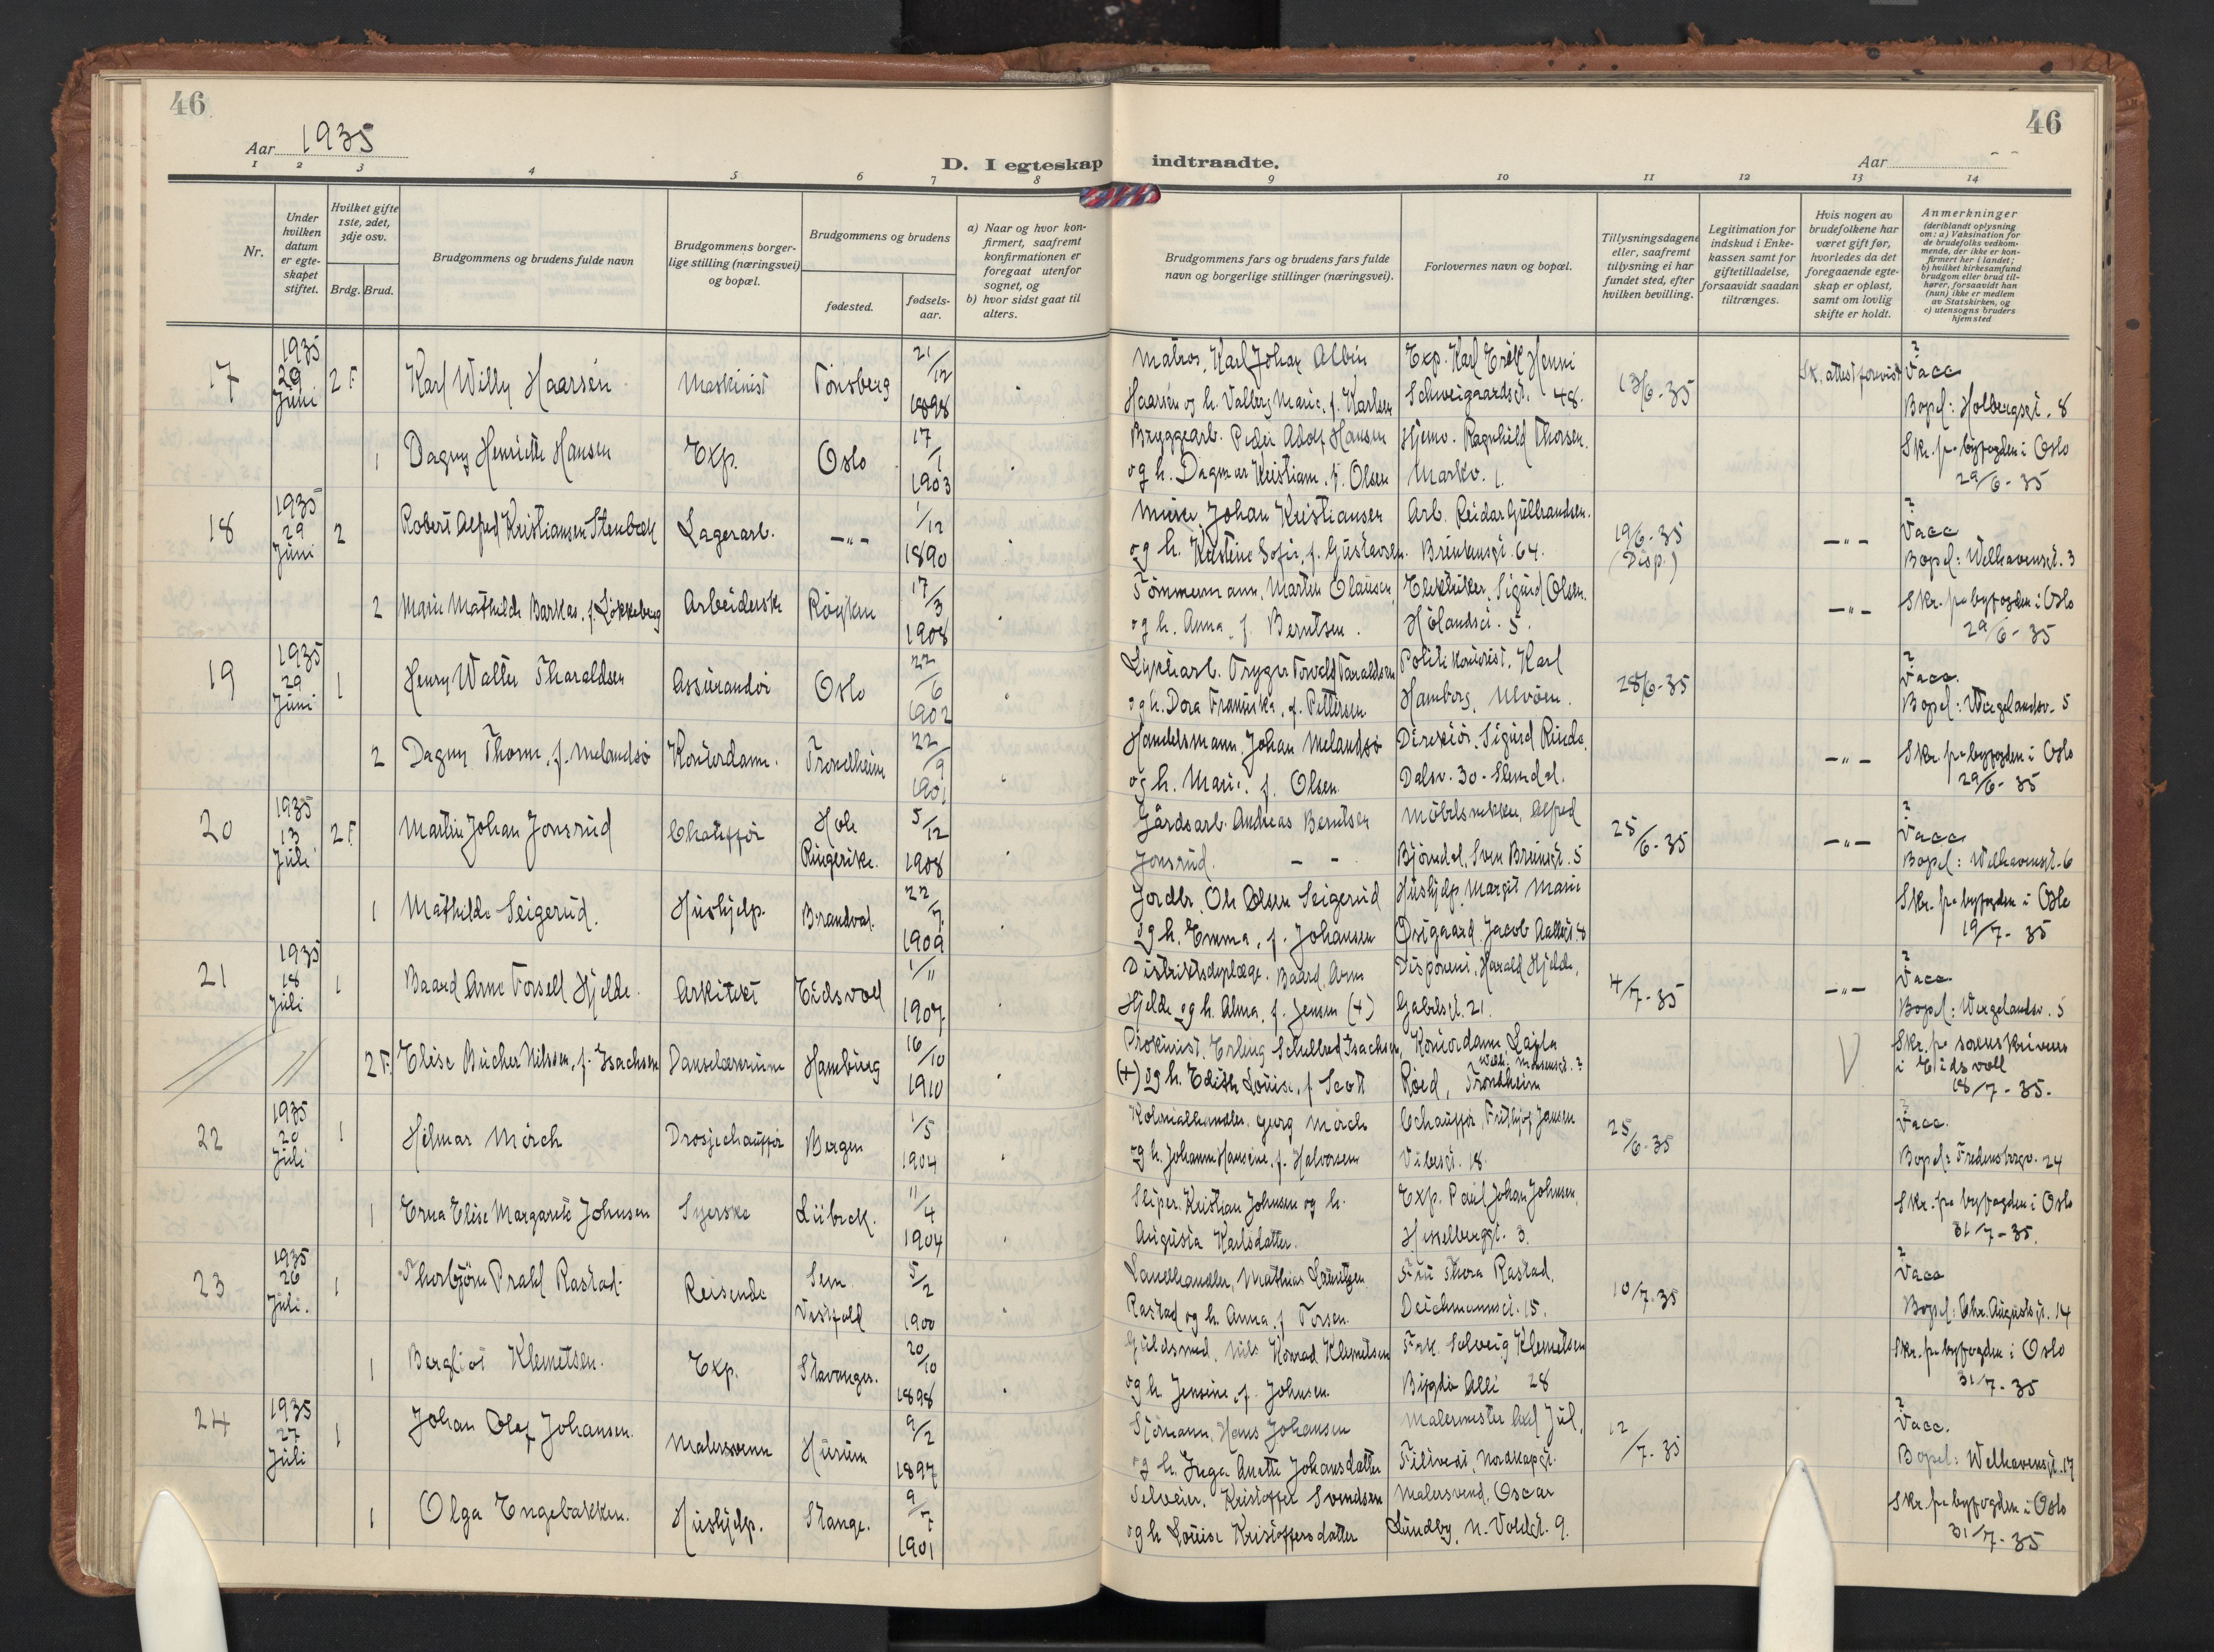 46
46
Aar 1935
D. I egteskap indtraadte.
Aar - -
1 2 3 4 5 6 7 8 9 10 11 12 13 14
Nr.
Under hvilken datum er egteskapet stiftet.
Hvilket gifte 1ste, 2det, 3dje osv.
Brdg. Brud.
Brudgommens og brudens fulde navn
Brudgommens borgerlige stilling (næringsvei) og bopæl.
Brudgommens og brudens
fødested.
fødselsaar.
a) Naar og hvor konfirmert, saafremt konfirmationen er foregaat utenfor sognet, og
b) hvor sidst gaat til alters.
Brudgommens fars og brudens fars fulde navn og borgerlige stillinger (næringsvei).
Forlovernes navn og bopæl.
Tillysningsdagene eller, saafremt tillysning ei har fundet sted, efter hvilken bevilling.
Legitimation for indskud i Enkekassen samt for giftetilladelse, forsaavidt saadan tiltrænges.
Hvis nogen av brudefolkene har været gift før, hvorledes da det foregaaende egteskap er opløst, samt om lovlig skifte er holdt.
Anmerkninger (deriblandt oplysning om: a) Vaksination for de brudefolks vedkommende, der ikke er konfirmert her i landet; b) hvilket kirkesamfund brudgom eller brud tilhører, forsaavidt han (hun) ikke er medlem av Statskirken, og c) utensogns bruders hjemsted
17 1935 29 Juni 2 F. Karl Willy Haarsén Maskinist Tönsberg 21/12 1898 Matros, Karl Johan Albin Exp. Karl Erik Henni 13/6-35 Sk. attest forevist 2 Vacc
Haarsén og h. Valborg Marie, f. Karlsen Schweigaardsgt. 48. Bopel: Holbergsgt. 8
1 Dagny Henriette Hansen Exp. Oslo 17/1 1903 Bryggearb. Peder Adolf Hansen Hjemv. Ragnhild Thorsen. Skr. pa byfogden i Oslo
og h. Dagmar Kristiane, f. Olsen Markv. 1. 29/6-35
18 1935 29 Juni 2 Robert Alfred Kristiansen Stenbæk Lagerarb. -"- 1/12 1890 Murer Johan Kristiansen Arb. Reidar Gulbrandsen. 19/6-35 (Disp.) -"- 2 Vacc
og h. Kirstine Sofie, f. Gustavsen. Brinkensgt. 64. Bopel: Welhavensgt. 3
2 Marie Mathilde Barkås, f. Lökkeberg Arbeiderske Röyken 17/3 1908 Tömmermann, Martin Olausen, Elektriker, Sigurd Olsen. -"- Skr. pa byfogden i Oslo
og h. Anna, f. Berntsen. Hölandsgt. 5. 29/6-35
19 1935 29 Juni 1 Henry Walter Tharaldsen Assurandör Oslo 22/6 1902 Lyktearb. Trygve Torvald Taraldsen Politikonst. Karl 28/6-35 2 Vacc.
og h. Dora Franciska, f. Pettersen Hamborg, Ulvöen. Bopel: Wergelandsv. 5
2 Dagny Thorne, f. Melandsö Kontordame. Trondheim 22/9 1901 Handelsmann, Johan Melandsö Direktör, Sigurd Rinde -"- Skr. pa byfogden i Oslo
og h. Marie, f. Olsen Dalsv. 30 - Slemdal. 29/6-35
20 1935 13 Juli 2 F. Martin Johan Jonsrud Chaufför Hole Ringerike. 5/12 1908 Gårdsarb. Andreas Berntsen Möbelsnekker, Alfred 25/6-35 -"- 2 Vacc
Jonsrud. - - Björndal, Sven Brunsgt. 5 Bopel: Welhavensgt. 6
1 Mathilde Seigerud. Hushjelp. Brandval. 22/7 1909 Jordbr. Ole Olsen Seigerud Hushjelp, Margit Marie Skr. pa byfogden i Oslo
og h. Emma, f. Johansen Östgaard, Jacob Aallsgt. 8 19/7-35
21 1935 18 Juli 1 Baard Arne Torsell Hjelde. Arkitekt Eidsvoll 1/11 1907 Distriktsdyrlæge. Baard Arne Disponent, Harald Hjelde, 4/7-35 -"- 2 Vacc
Hjelde og h. Alma, f. Jensen (+) Gabelsgt. 21. Bopel: Wergelandsv. 5
2 F. Elise Bücher Nilssen, f. Isachsen Danselærerinne Hamburg 16/10 1910 Prokurist, Erling Schelbred Isachsen, Kontordame Laila V Skr. pa sorenskriveren i Eidsvoll
(+) og h. Edith Louise, f. Scott Röed, Trondheim 18/7-35.
22 1935 20 Juli 1 Hilmar Mörch Drosjechauffør Bergen 1/5 1904 Kolonialhandler, Georg Mörch Chauffør, Frithjof Jansen 25/6-35 2 Vacc.
og h. Johanne Hansine, f. Halvorsen Vibesgt. 18. Bopel: Fredensborgv. 24
1 Erna Elise Margarete Johnsen Syerske Lübeck. 11/4 1904 Sliper. Kristian Johnsen og h. Exp. Paul Johan Johnsen, Skr. pa byfogden i Oslo
Augusta Karlsdatter. Hesselbergsgt. 3. 31/7-35.
23 1935 26 Juli. 1 Thorbjörn Prahl Rastad. Reisende Sem Vestfold 5/2 1900 Landhandler, Mathias Lauritzen Fru Thora Rastad, 10/7-35 2 Vacc
Rastad og h. Anna, f. Torsen. Deichmannsgt. 15. Bopel: Chr. Augustsgt. 14
1 Bergliot Klemetsen. Exp. Stavanger. 20/10 1898 Guldsmed, Nils Konrad Klemetsen Frk. Solveig Klemetsen Skr. pa byfogden i Oslo
og h. Jensine, f. Johnsen. Bygdö Allé 28 31/7-35
24 1935 27 Juli 1 Johan Olaf Johansen. Malersvenn Hurum 9/2 1897 Sjömann, Hans Johansen Malermester Axel Jul. 12/7-35 2 Vacc.
og h. Inga Anette Johansdatter Filtvedt, Nordkapgt. Bopel: Welhavensgt. 17
1 Olga Engebakken. Hushjelp. Stange. 9/7 1901 Selveier, Kristoffer Svendsen Malersvend, Oscar Skr. pa byfogden i Oslo
og h. Louise Kristoffersdatter Lundby, N. Voldgt. 9. 31/7-35